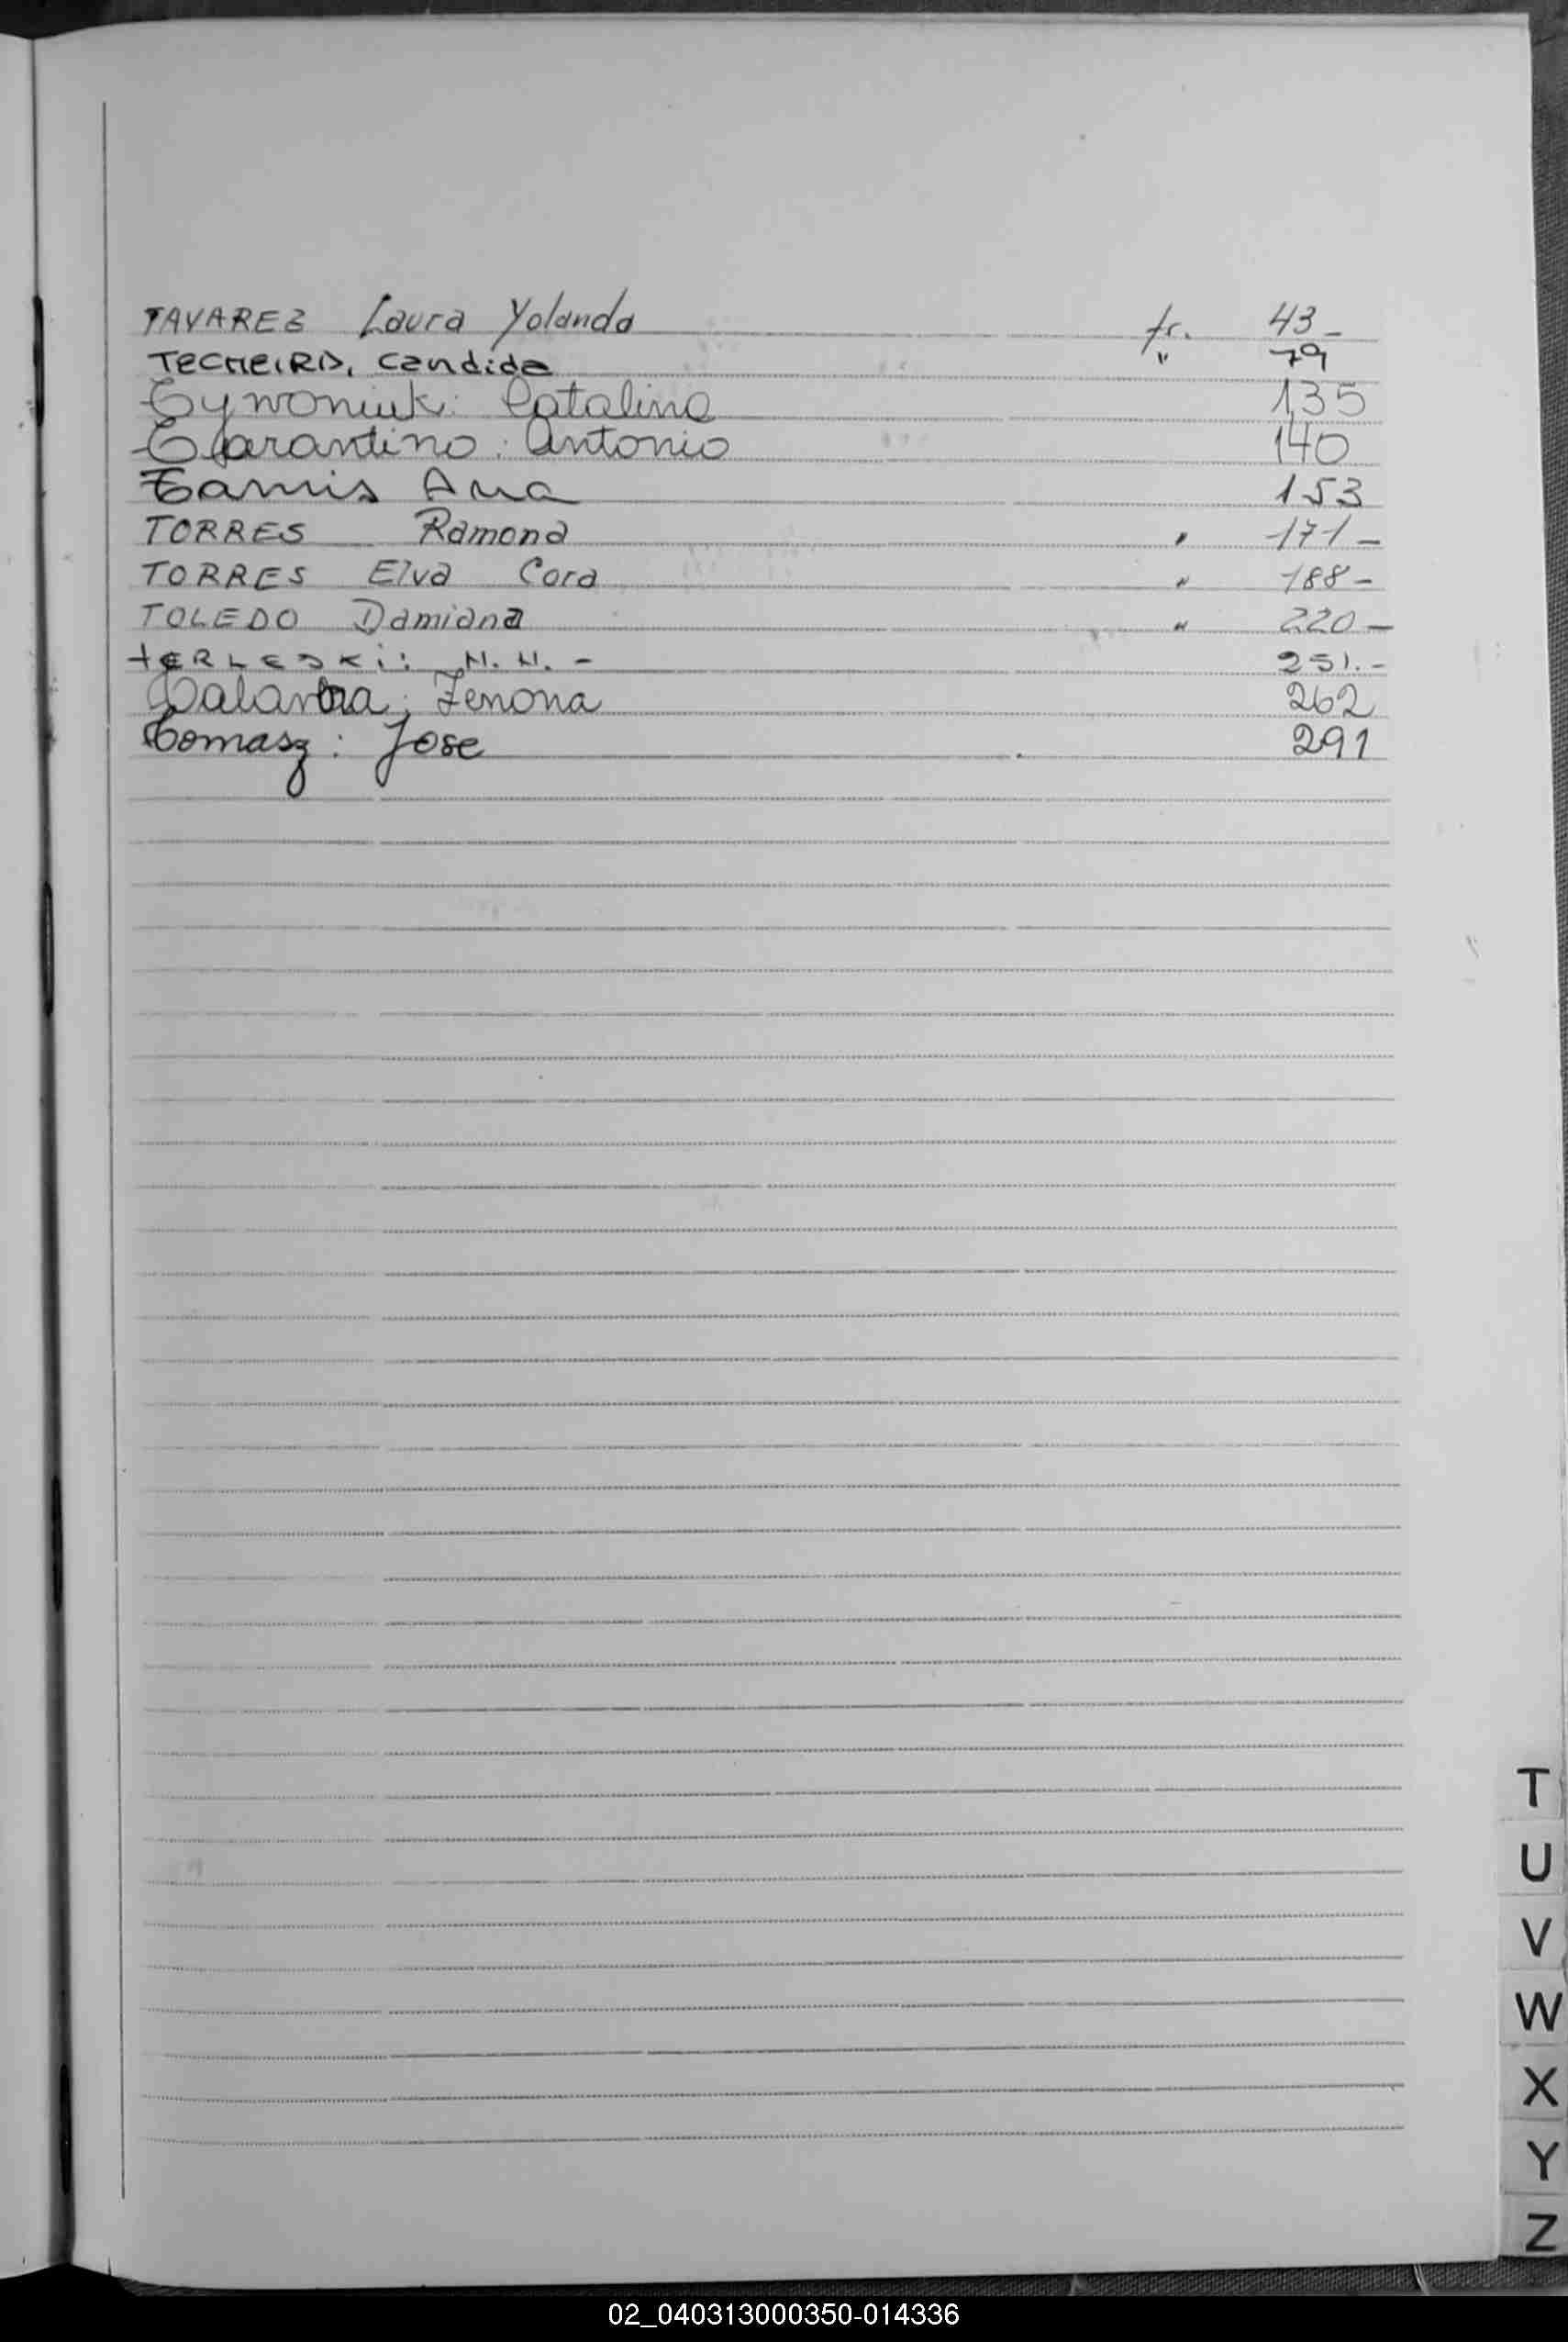 TAVAREZ Laura Yolanda fr. 43-
TECHEIRO, Candida " 79
Tywoniuk: Catalina 135
Tarantino: Antonio 140
Tamis Ana 153
TORRES Ramona " 171-
TORRES Elva Cora " 188-
TOLEDO Damiana " 220-
TERLESKI: N. N. - 251.-
Zenona 262
Tomasz: Jose 291
T
U
V
W
X
Y
Z
02_040313000350-014336